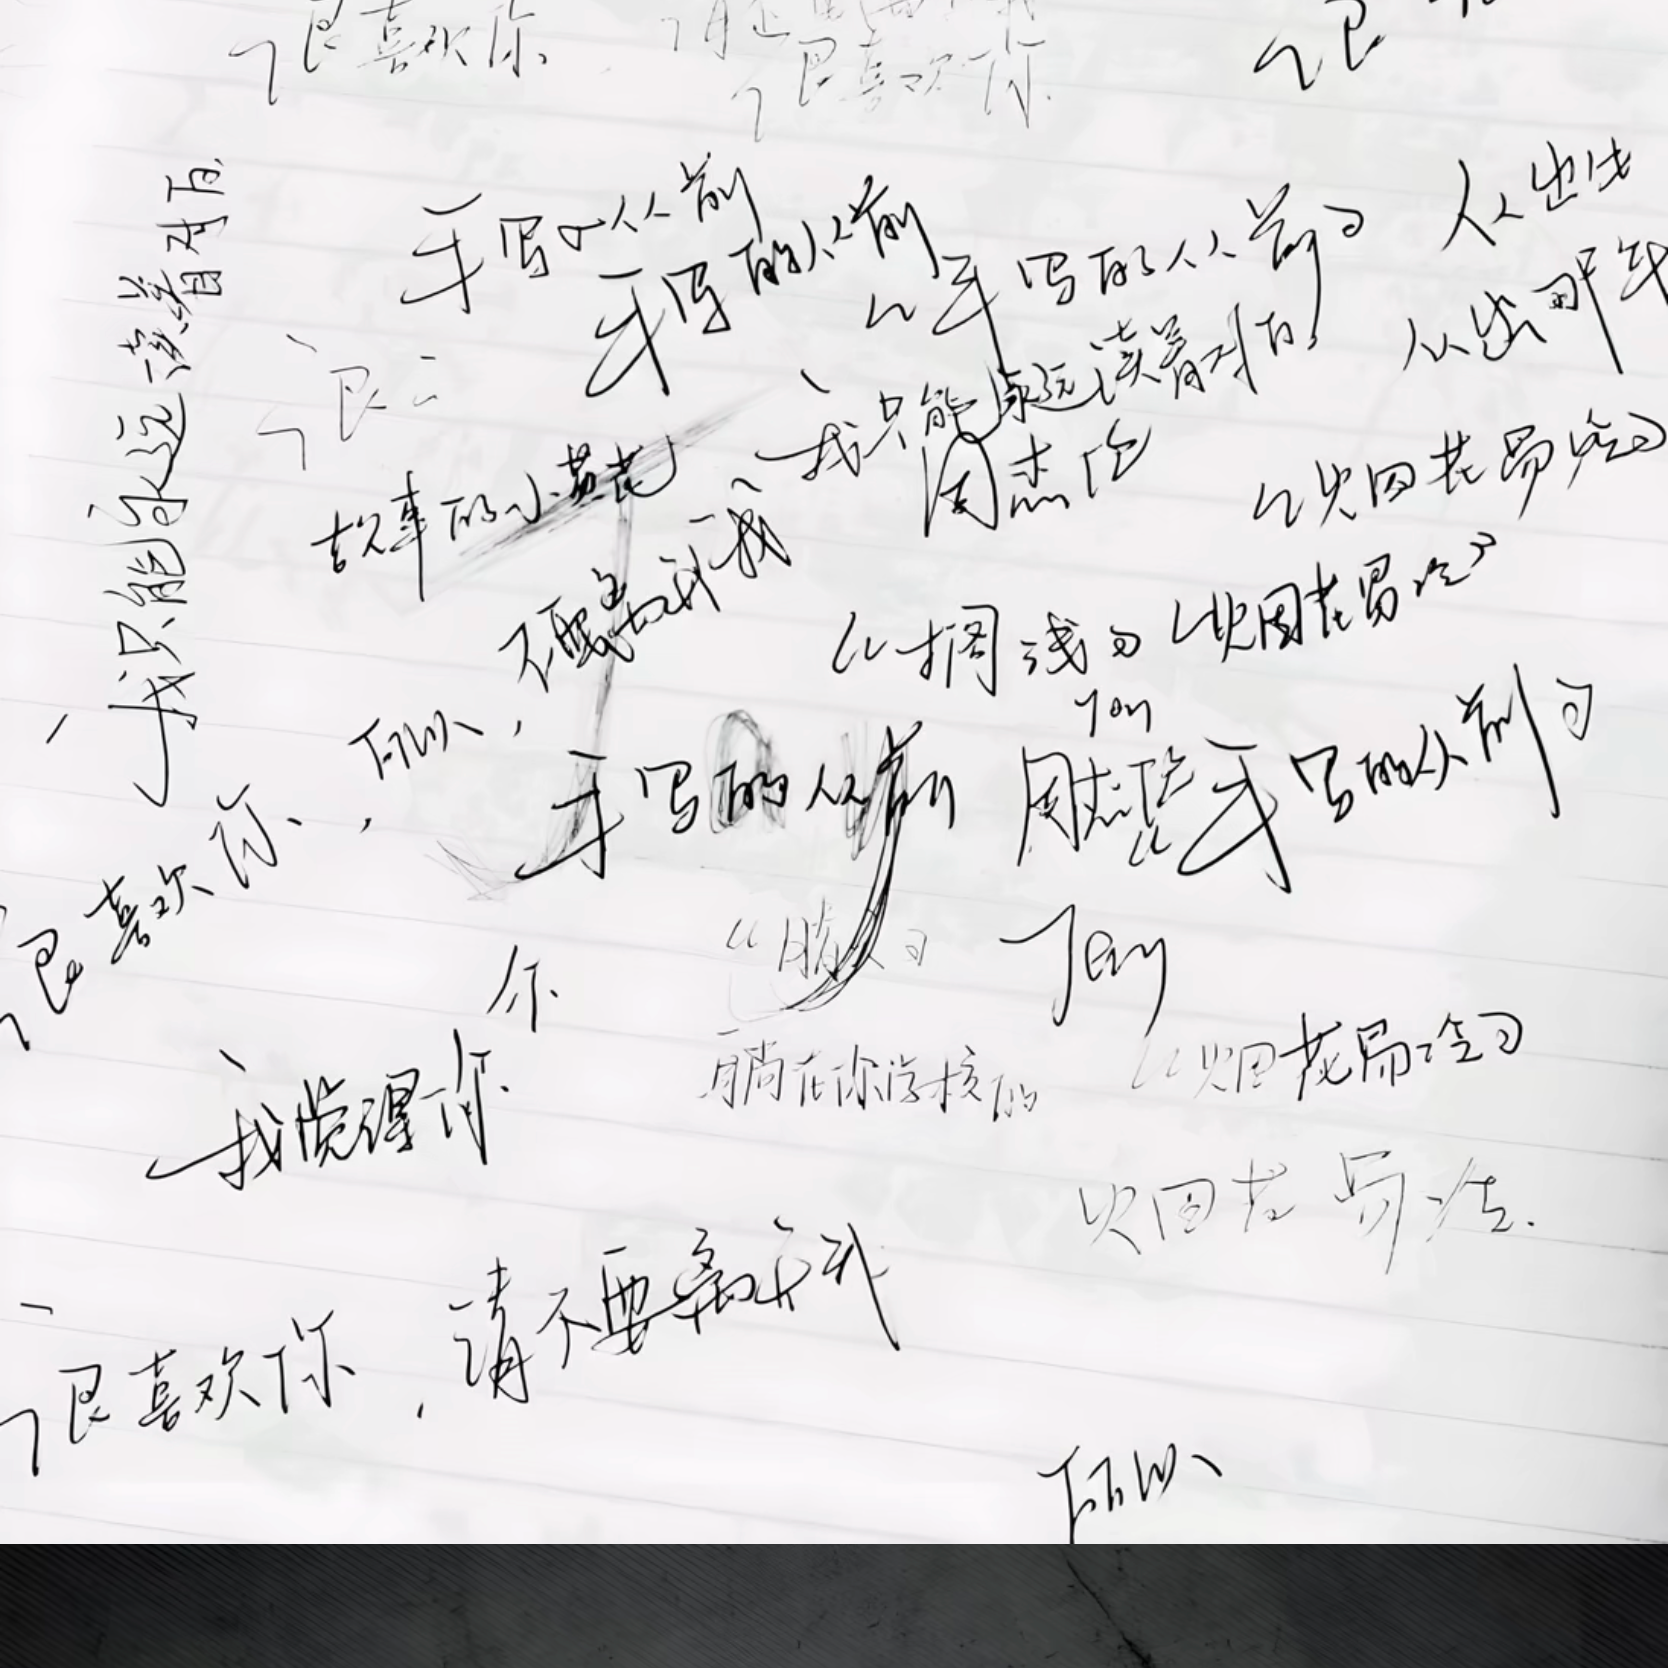 很喜欢你
很喜欢你
很
我只能永远读着对白
手写的从前
手写的从前
"手写的从前"
从出生
从出那年
很
我只能永远读着对白
故事的小黄花
周杰伦
"烟花易冷"
不要离开我
我
"搁浅"
"烟花易冷"
所以,
手写的从前
Jay
周杰伦
"手写的从前"
很喜欢你,
你
Jay
我觉得你
躺在你学校的
"烟花易冷"
烟花易冷.
很喜欢你,请不要离开我
所以